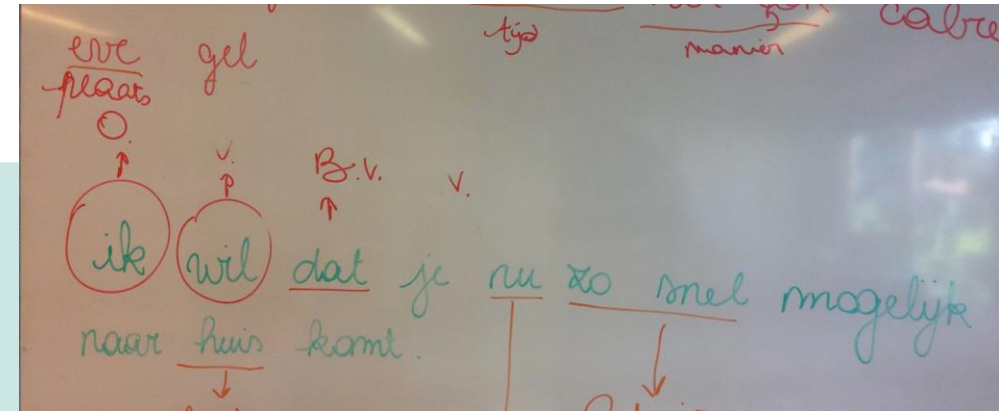 tijd manier cabre
eve gel
plaats
O. V. B.V. V.
ik wil dat je nu zo snel mogelijk
naar huis komt.